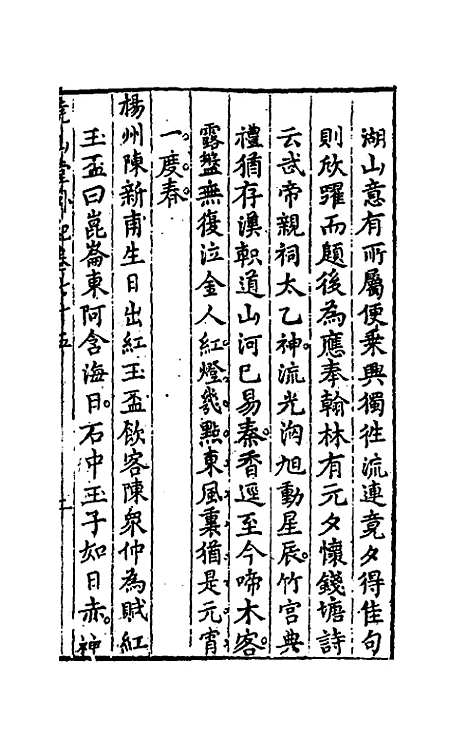 湖山意有所屬便乗興獨徃流連竟夕得佳句
則欣躍而題後為應奉翰林有元夕懷錢塘詩
云武帝親祠太乙神。流光沟旭動星辰。竹宮典
禮猶存漢。軹道山河已易秦。香逕至今啼木客。
露盤無復泣金人。紅燈幾點東風裏。猶是元宵
一度春。
楊州陳新甫生日出紅玉盃飲客陳衆仲為賦紅
玉盃曰崑崙東阿含海日。石中玉子如日赤。神
堯山堂外紀卷七十五